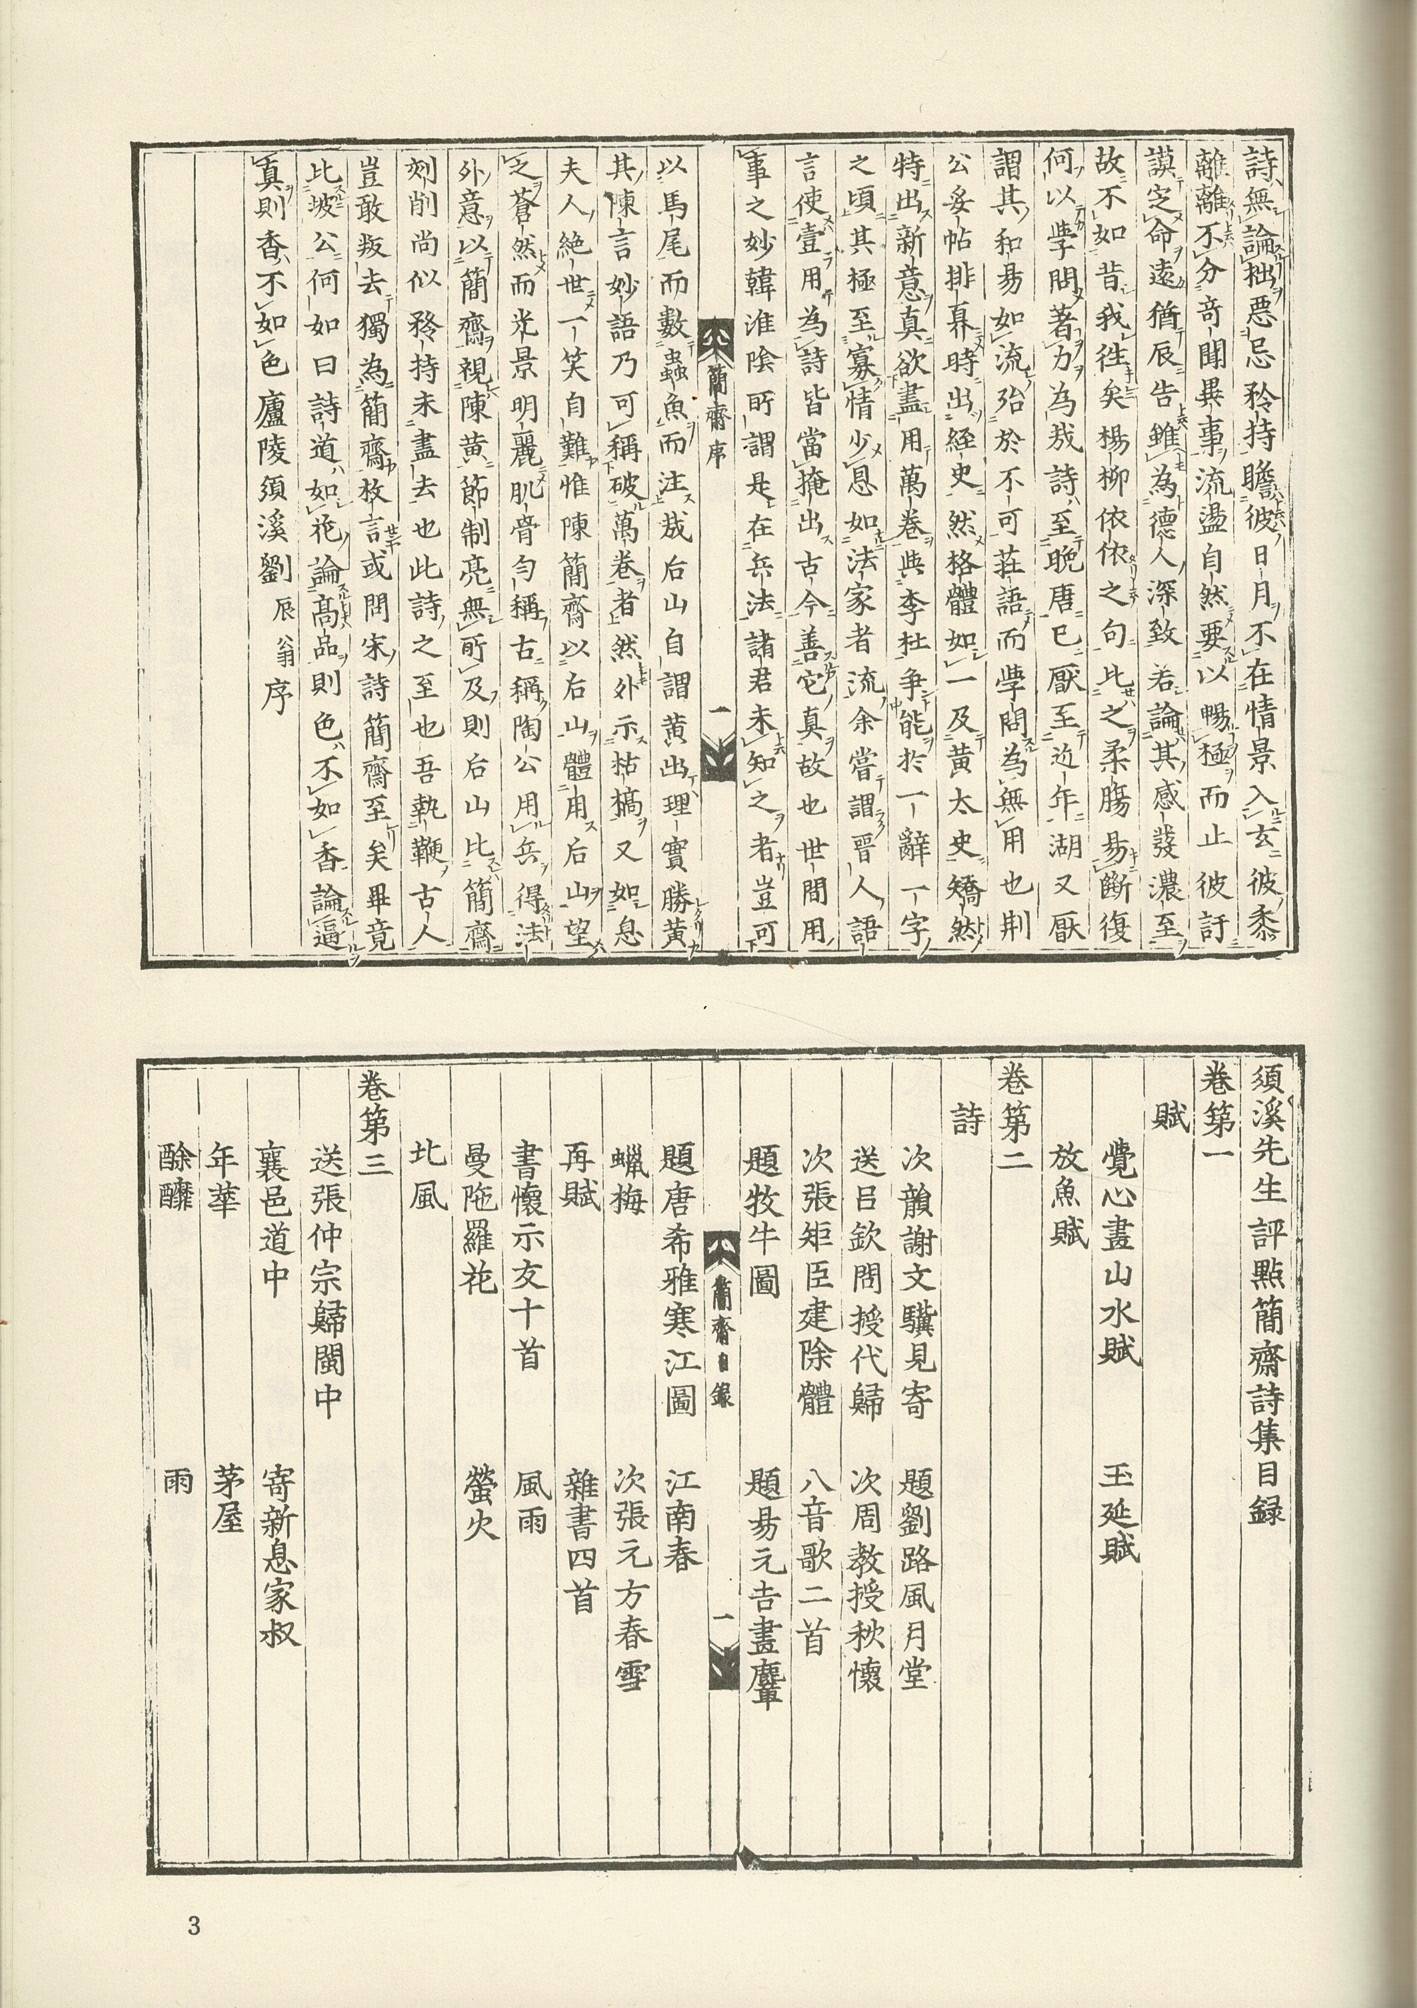 詩無論拙惡忌矜持瞻彼日月不在情景入玄彼黍
離離不分奇聞異事流盪自然要以暢極而止彼訏
謨定命遠猶辰告雖為德人深致若論其感發濃至
故不如昔我徃矣楊柳依依之句比之柔膓易斷復
何以學問著力為㢤詩至晚唐已厭至近年湖又厭
謂其和易如流殆於不可莊語而學問為無用也荆
公妥帖排奡時出經史然格體如一及黃太史矯然
特出新意真欲盡用萬卷與李杜爭能於一辭一字
之頃其極至寡情少恩如法家者流余嘗謂晉人語
言使壹用為詩皆當掩出古今善它真故也世間用
事之妙韓淮陰所謂是在兵法諸君未知之者豈可
簡齋序 一
以馬尾而數蟲魚而注㢤后山自謂黃出理實勝黃
其陳言妙語乃可稱破萬卷者然外示枯槁又如息
夫人絶世一笑自難惟陳簡齋以后山體用后山望
之蒼然而光景明麗肌骨勻稱古稱陶公用兵得法
外意以簡齋視陳黃節制亮無所及則后山比簡齋
刻削尚似矜持未盡去也此詩之至也吾執鞭古人
豈敢叛去獨為簡齋放言或問宋詩簡齋至矣畢竟
比坡公何如曰詩道如花論高品則色不如香論逼
真則香不如色廬陵須溪劉辰翁序
須溪先生評點簡齋詩集目録
卷第一
賦
覺心畫山水賦 玉延賦
放魚賦
卷第二
詩
次韻謝文驥見寄 題劉路風月堂
送呂欽問授代歸 次周教授秋懷
次張矩臣建除體 八音歌二首
題牧牛圖 題易元吉畫麞
簡齋目録 一
題唐希雅寒江圖 江南春
蠟梅 次張元方春雪
再賦 雜書四首
書懷示友十首 風雨
曼陁羅花 螢火
北風
卷第三
送張仲宗歸閩中
襄邑道中 寄新息家叔
年華 茅屋
酴醾 雨
3